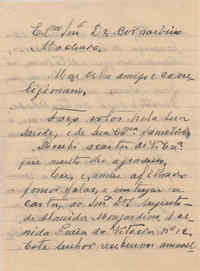 Ex.mo Snr. Dr. Bernardino
Machado.
Meu Ex.mo amigo e corre
ligionario.
Faço votos pela sua
saude, e de sua Ex.ma familia.
Recebi a carta de V. Ex.a
que muito lhe agradeço.
Eu, e, meu afilhado
fomos falar, e entregar a
carta, ao Snr. Dr. Augusto
de Almeida Monjardino, á Ave
nida
Este senhor recebeu-nos